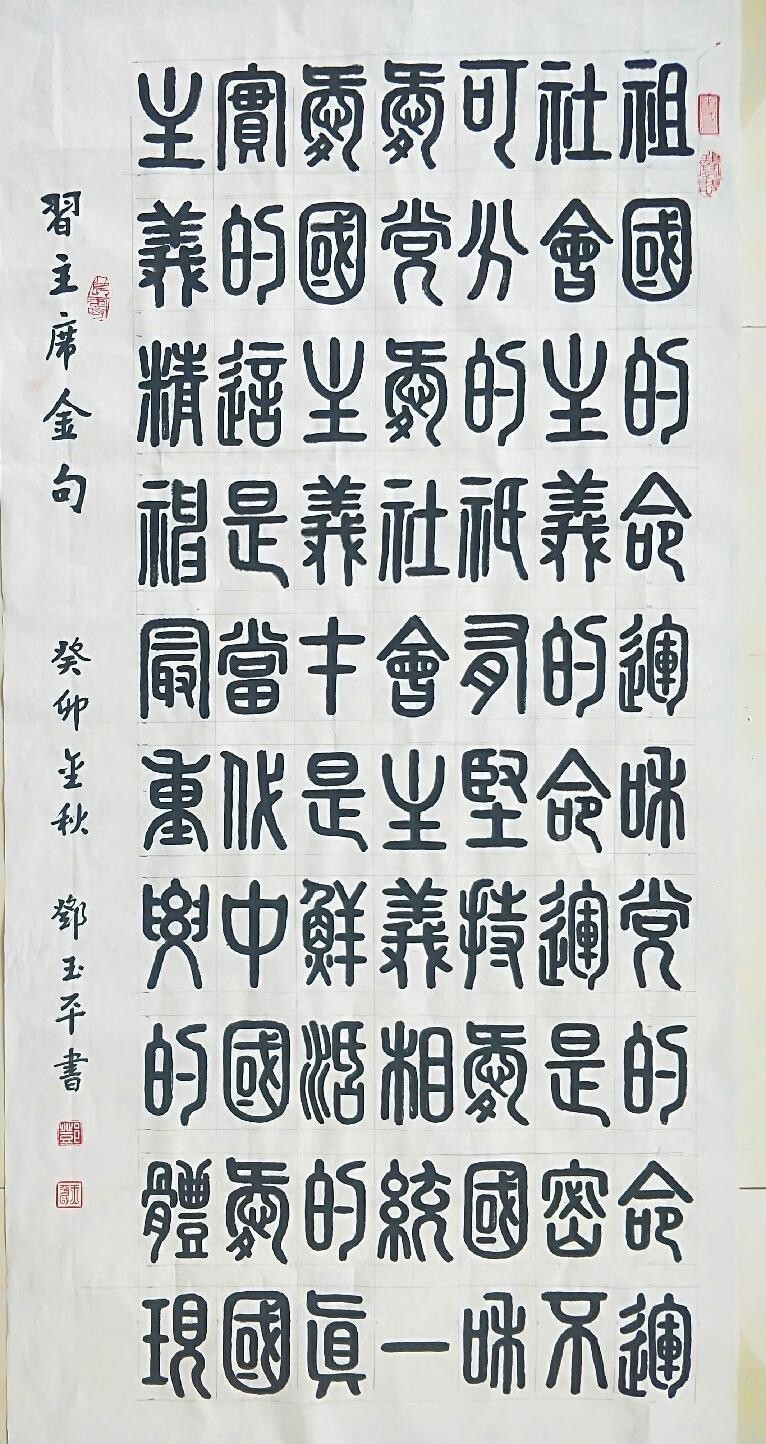 祖國的命運和党的命運
社會主義的命運是密不
可分的祇有堅持愛國和
愛党愛社會主義相統一
愛國主義才是鮮活的眞
實的這是當代中國愛國
主義精神最重要的體現
習主席金句 癸卯金秋 鄧玉平書